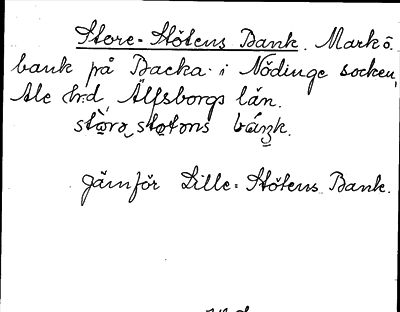 Store-Stötens Bank. Mark ö.
bank på Backa i Nödinge socken,
Ale hrd, Älfsborgs län.
stòrə støtəns báŋk.
Jämför Lille-Stötens Bank.